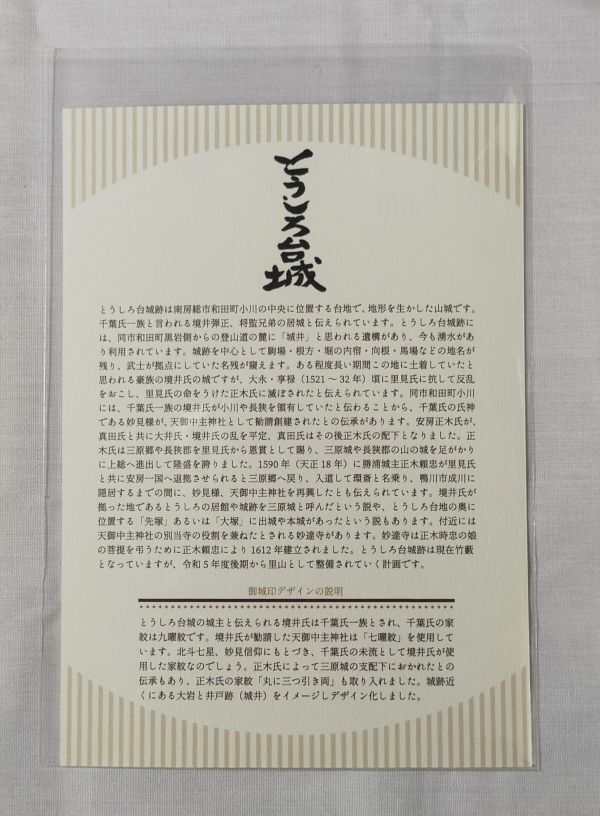 とうしろ台城
とうしろ台城跡は南房総市和田町小川の中央に位置する台地で、地形を生かした山城です。
千葉氏一族と言われる境井弾正、将監兄弟の居城と伝えられています。とうしろ台城跡に
は、同市和田町黒岩側からの登山道の麓に「城井」と思われる遺構があり、今も湧水があ
り利用されています。城跡を中心として駒場・根方・堀の内宿・向根・馬場などの地名が
残り、武士が拠点にしていた名残が窺えます。ある程度長い期間この地に土着していたと
思われる豪族の境井氏の城ですが、大永・享禄（1521～32年）頃に里見氏に抗して反乱
をおこし、里見氏の命をうけた正木氏に滅ぼされたと伝えられています。同市和田町小川
には、千葉氏一族の境井氏が小川や長狭を領有していたと伝わることから、千葉氏の氏神
である妙見様が、天御中主神社として勧請創建されたとの伝承があります。安房正木氏が、
真田氏と共に大井氏・境井氏の乱を平定、真田氏はその後正木氏の配下となりました。正
木氏は三原郷や長狭郡を里見氏から恩賞として賜り、三原城や長狭郡の山の城を足がかり
に上総へ進出して隆盛を誇りました。1590年（天正18年）に勝浦城主正木頼忠が里見氏
と共に安房一国へ退拠させられると三原郷へ戻り、入道して環斎と名乗り、鴨川市成川に
隠居するまでの間に、妙見様、天御中主神社を再興したとも伝えられています。境井氏が
拠った地であるとうしろの居館や城跡を三原城と呼んだという説や、とうしろ台地の奥に
位置する「先塚」あるいは「大塚」に出城や本城があったという説もあります。付近には
天御中主神社の別当寺の役割を兼ねたとされる妙達寺があります。妙達寺は正木時忠の娘
の菩提を弔うために正木頼忠により1612年建立されました。とうしろ台城跡は現在竹藪
となっていますが、令和５年度後期から里山として整備されていく計画です。
御城印デザインの説明
とうしろ台城の城主と伝えられる境井氏は千葉氏一族とされ、千葉氏の家
紋は九曜紋です。境井氏が勧請した天御中主神社は「七曜紋」を使用して
います。北斗七星、妙見信仰にもとづき、千葉氏の末流として境井氏が使
用した家紋なのでしょう。正木氏によって三原城の支配下におかれたとの
伝承もあり、正木氏の家紋「丸に三つ引き両」も取り入れました。城跡近
くにある大岩と井戸跡（城井）をイメージしデザイン化しました。